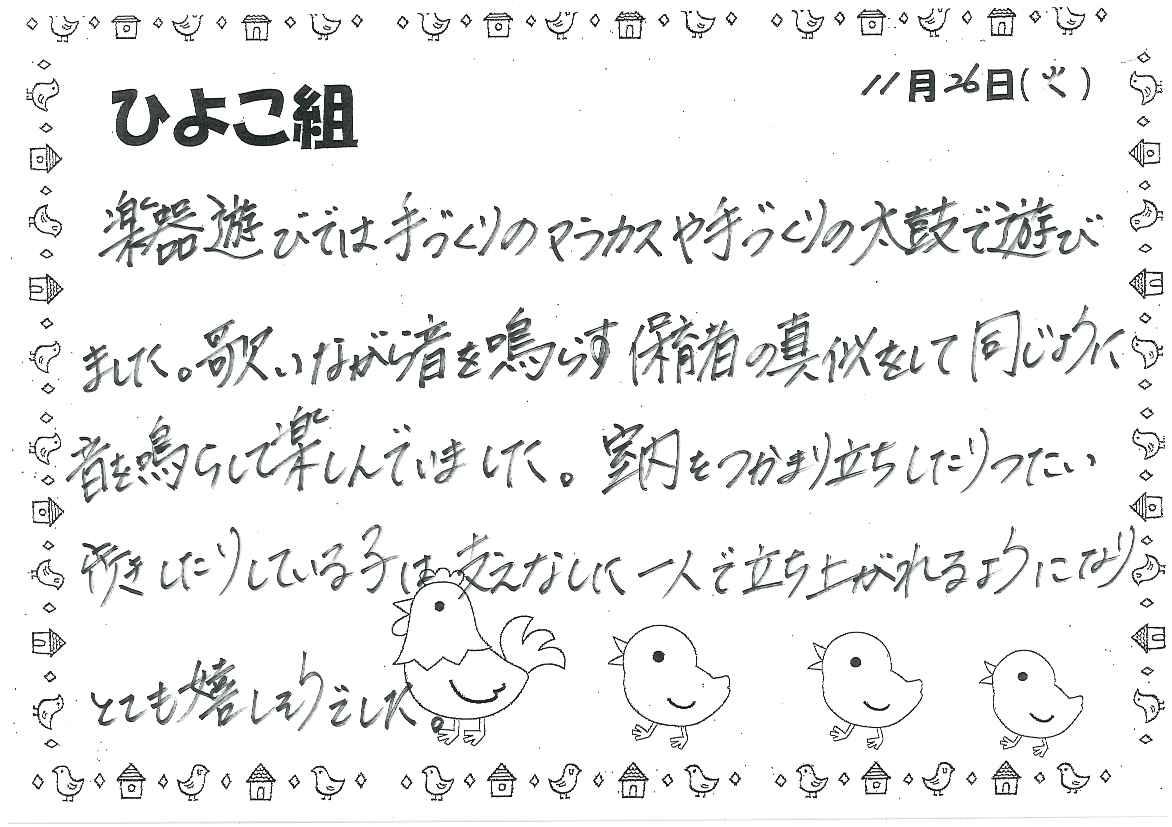 ひよこ組
11月26日(火)
楽器遊びでは手づくりのマラカスや手づくりの太鼓で遊び
ました。歌いながら音を鳴らす保育者の真似をして同じように
音を鳴らして楽しんでいました。室内をつかまり立ちしたりつたい
歩きしたりしている子は支えなしに一人で立ち上がれるようになり
とても嬉しそうでした。